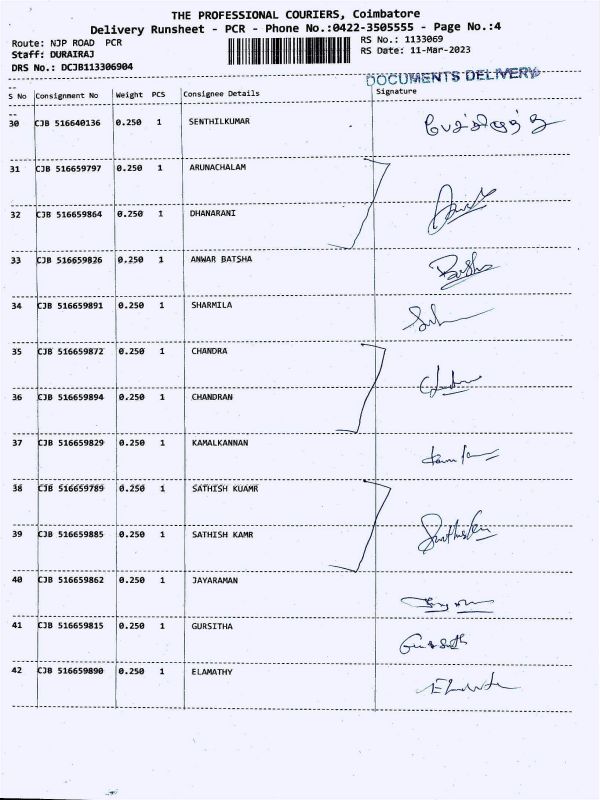 THE PROFESSIONAL COURIERS, Coimbatore
Delivery Runsheet - PCR - Phone No.:0422-3505555 - Page No.:4
Route: NJP ROAD PCR
RS No.: 1133069
Staff: DURAIRAJ
RS Date: 11-Mar-2023
DRS No.: DCJB113306904
DOCUMENTS DELIVERY
S No Consignment No Weight PCS Consignee Details Signature
30 CJB 516640136 0.250 1 SENTHILKUMAR
31 CJB 516659797 0.250 1 ARUNACHALAM
32 CJB 516659864 0.250 1 DHANARANI
33 CJB 516659826 0.250 1 ANWAR BATSHA Batsha
34 CJB 516659891 0.250 1 SHARMILA
35 CJB 516659872 0.250 1 CHANDRA
36 CJB 516659894 0.250 1 CHANDRAN
37 CJB 516659829 0.250 1 KAMALKANNAN
38 CJB 516659789 0.250 1 SATHISH KUAMR
39 CJB 516659885 0.250 1 SATHISH KAMR
40 CJB 516659862 0.250 1 JAYARAMAN
41 CJB 516659815 0.250 1 GURSITHA
42 CJB 516659890 0.250 1 ELAMATHY